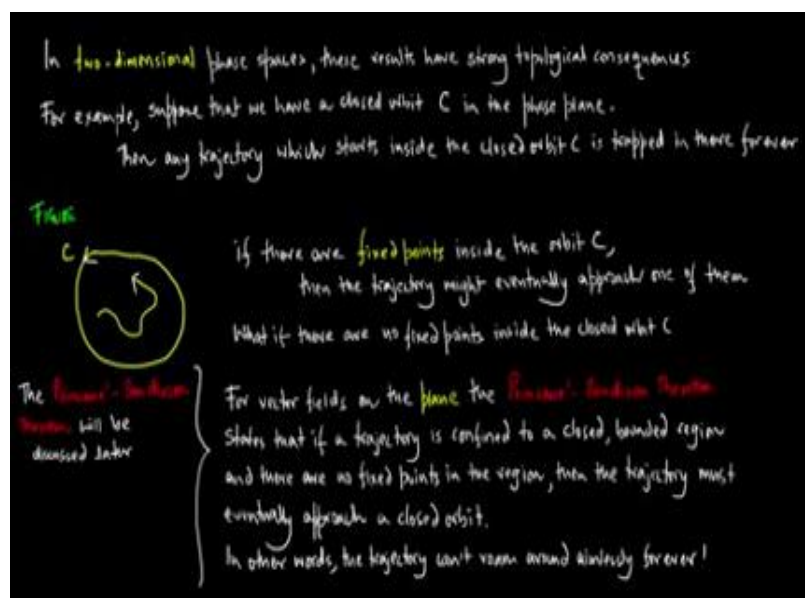 In two-dimensional phase spaces, these results have strong topological consequences
For example, suppose that we have a closed orbit C in the phase plane.
Then any trajectory which starts inside the closed orbit C is trapped in there forever
FIGURE
C
if there are fixed points inside the orbit C,
then the trajectory might eventually approach one of them
What if there are no fixed points inside the closed orbit C
The Poincaré-Bendixson
Theorem will be
discussed later
For vector fields on the plane the Poincaré-Bendixson Theorem
states that if a trajectory is confined to a closed, bounded region
and there are no fixed points in the region, then the trajectory must
eventually approach a closed orbit.
In other words, the trajectory can't roam around aimlessly forever!